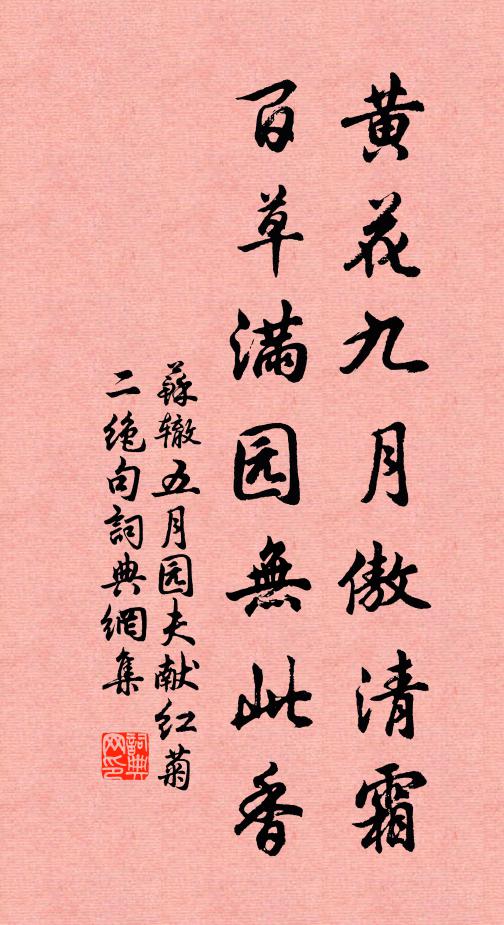 黄花九月傲清霜
百草满园無此香
蘇辙五月园夫献红菊
二绝句詞典網集
詞典网印